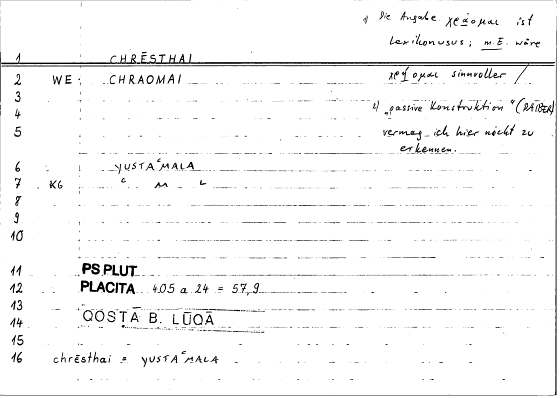 1) Die Angabe χράομαι ist
Lexikonusus; m.E. wäre
1 CHRĒSTHAI
2 WE: CHRAOMAI
χρήομαι sinnvoller /
3
2) „passive Konstruktion" (RÄIBER)
4
5
vermag ich hier nicht zu
erkennen.
6 YUSTAʿMALA
7 K6 ʿ M L
8
9
10
11 PS PLUT
12 PLACITA 405 a 24 = 57,9
13
14 QOSṬĀ B. LŪQĀ
15
16 chrēsthai = YUSTAʿMALA